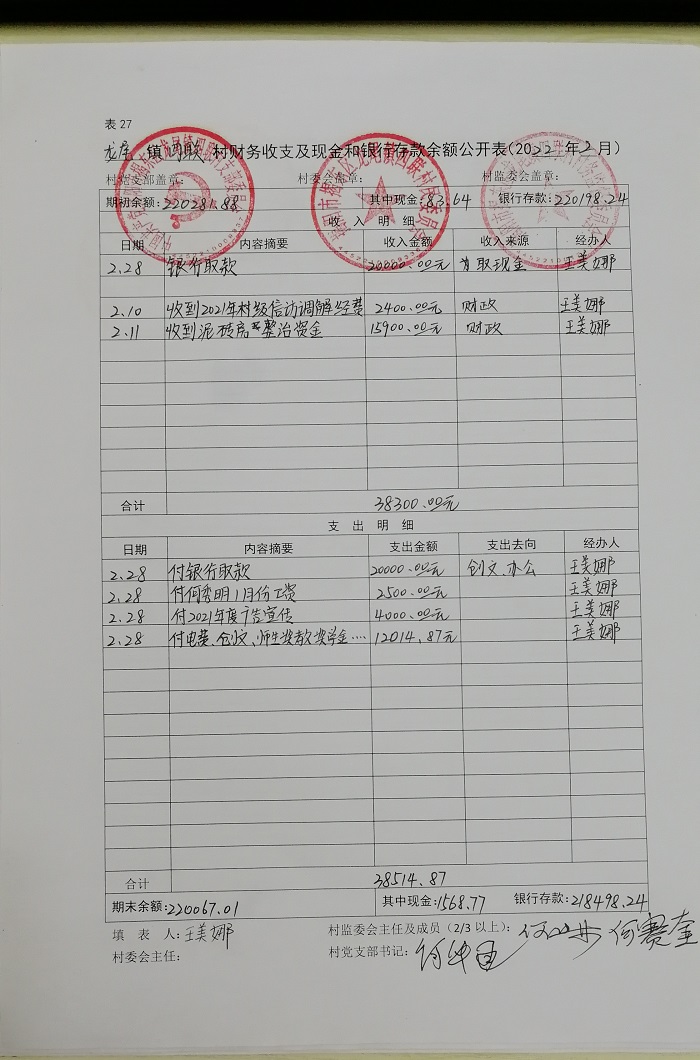 表27
龙尾 镇 四联 村财务收支及现金和银行存款余额公开表(2022年2月)
村党支部盖章: 村委会盖章: 村监委会盖章:
期初余额:220281.88 其中现金:83.64 银行存款:220198.24
收 入 明 细
日期 内容摘要 收入金额 收入来源 经办人
2.28 银行取款 20000.00元 提取现金 王美娜
2.10 收到2021年村级信访调解经费 2400.00元 财政 王美娜
2.11 收到泥砖房整治资金 15900.00元 财政 王美娜
合计 38300.00元
支 出 明 细
日期 内容摘要 支出金额 支出去向 经办人
2.28 付银行取款 20000.00元 创文.办公 王美娜
2.28 付何秀明1月份工资 2500.00元 王美娜
2.28 付2021年度广告宣传 4000.00元 王美娜
2.28 付电费、创文、师生奖教奖学金…… 12014.87元 王美娜
合计 38514.87
期末余额:220067.01 其中现金:1568.77 银行存款:218498.24
填 表 人:王美娜 村监委会主任及成员(2/3以上): 何赛奎
村委会主任: 村党支部书记: